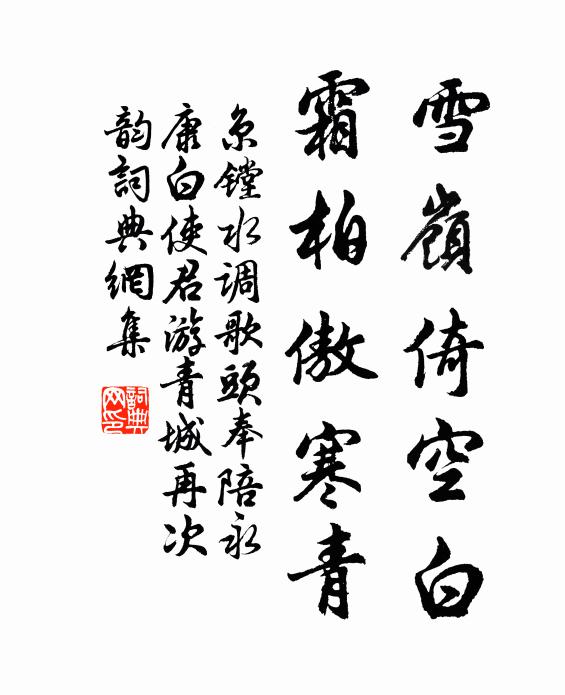 雪嶺倚空白
霜柏傲寒青
京镗水调歌頭奉陪永
康白使君游青城再次
韵詞典網集
詞典
网印